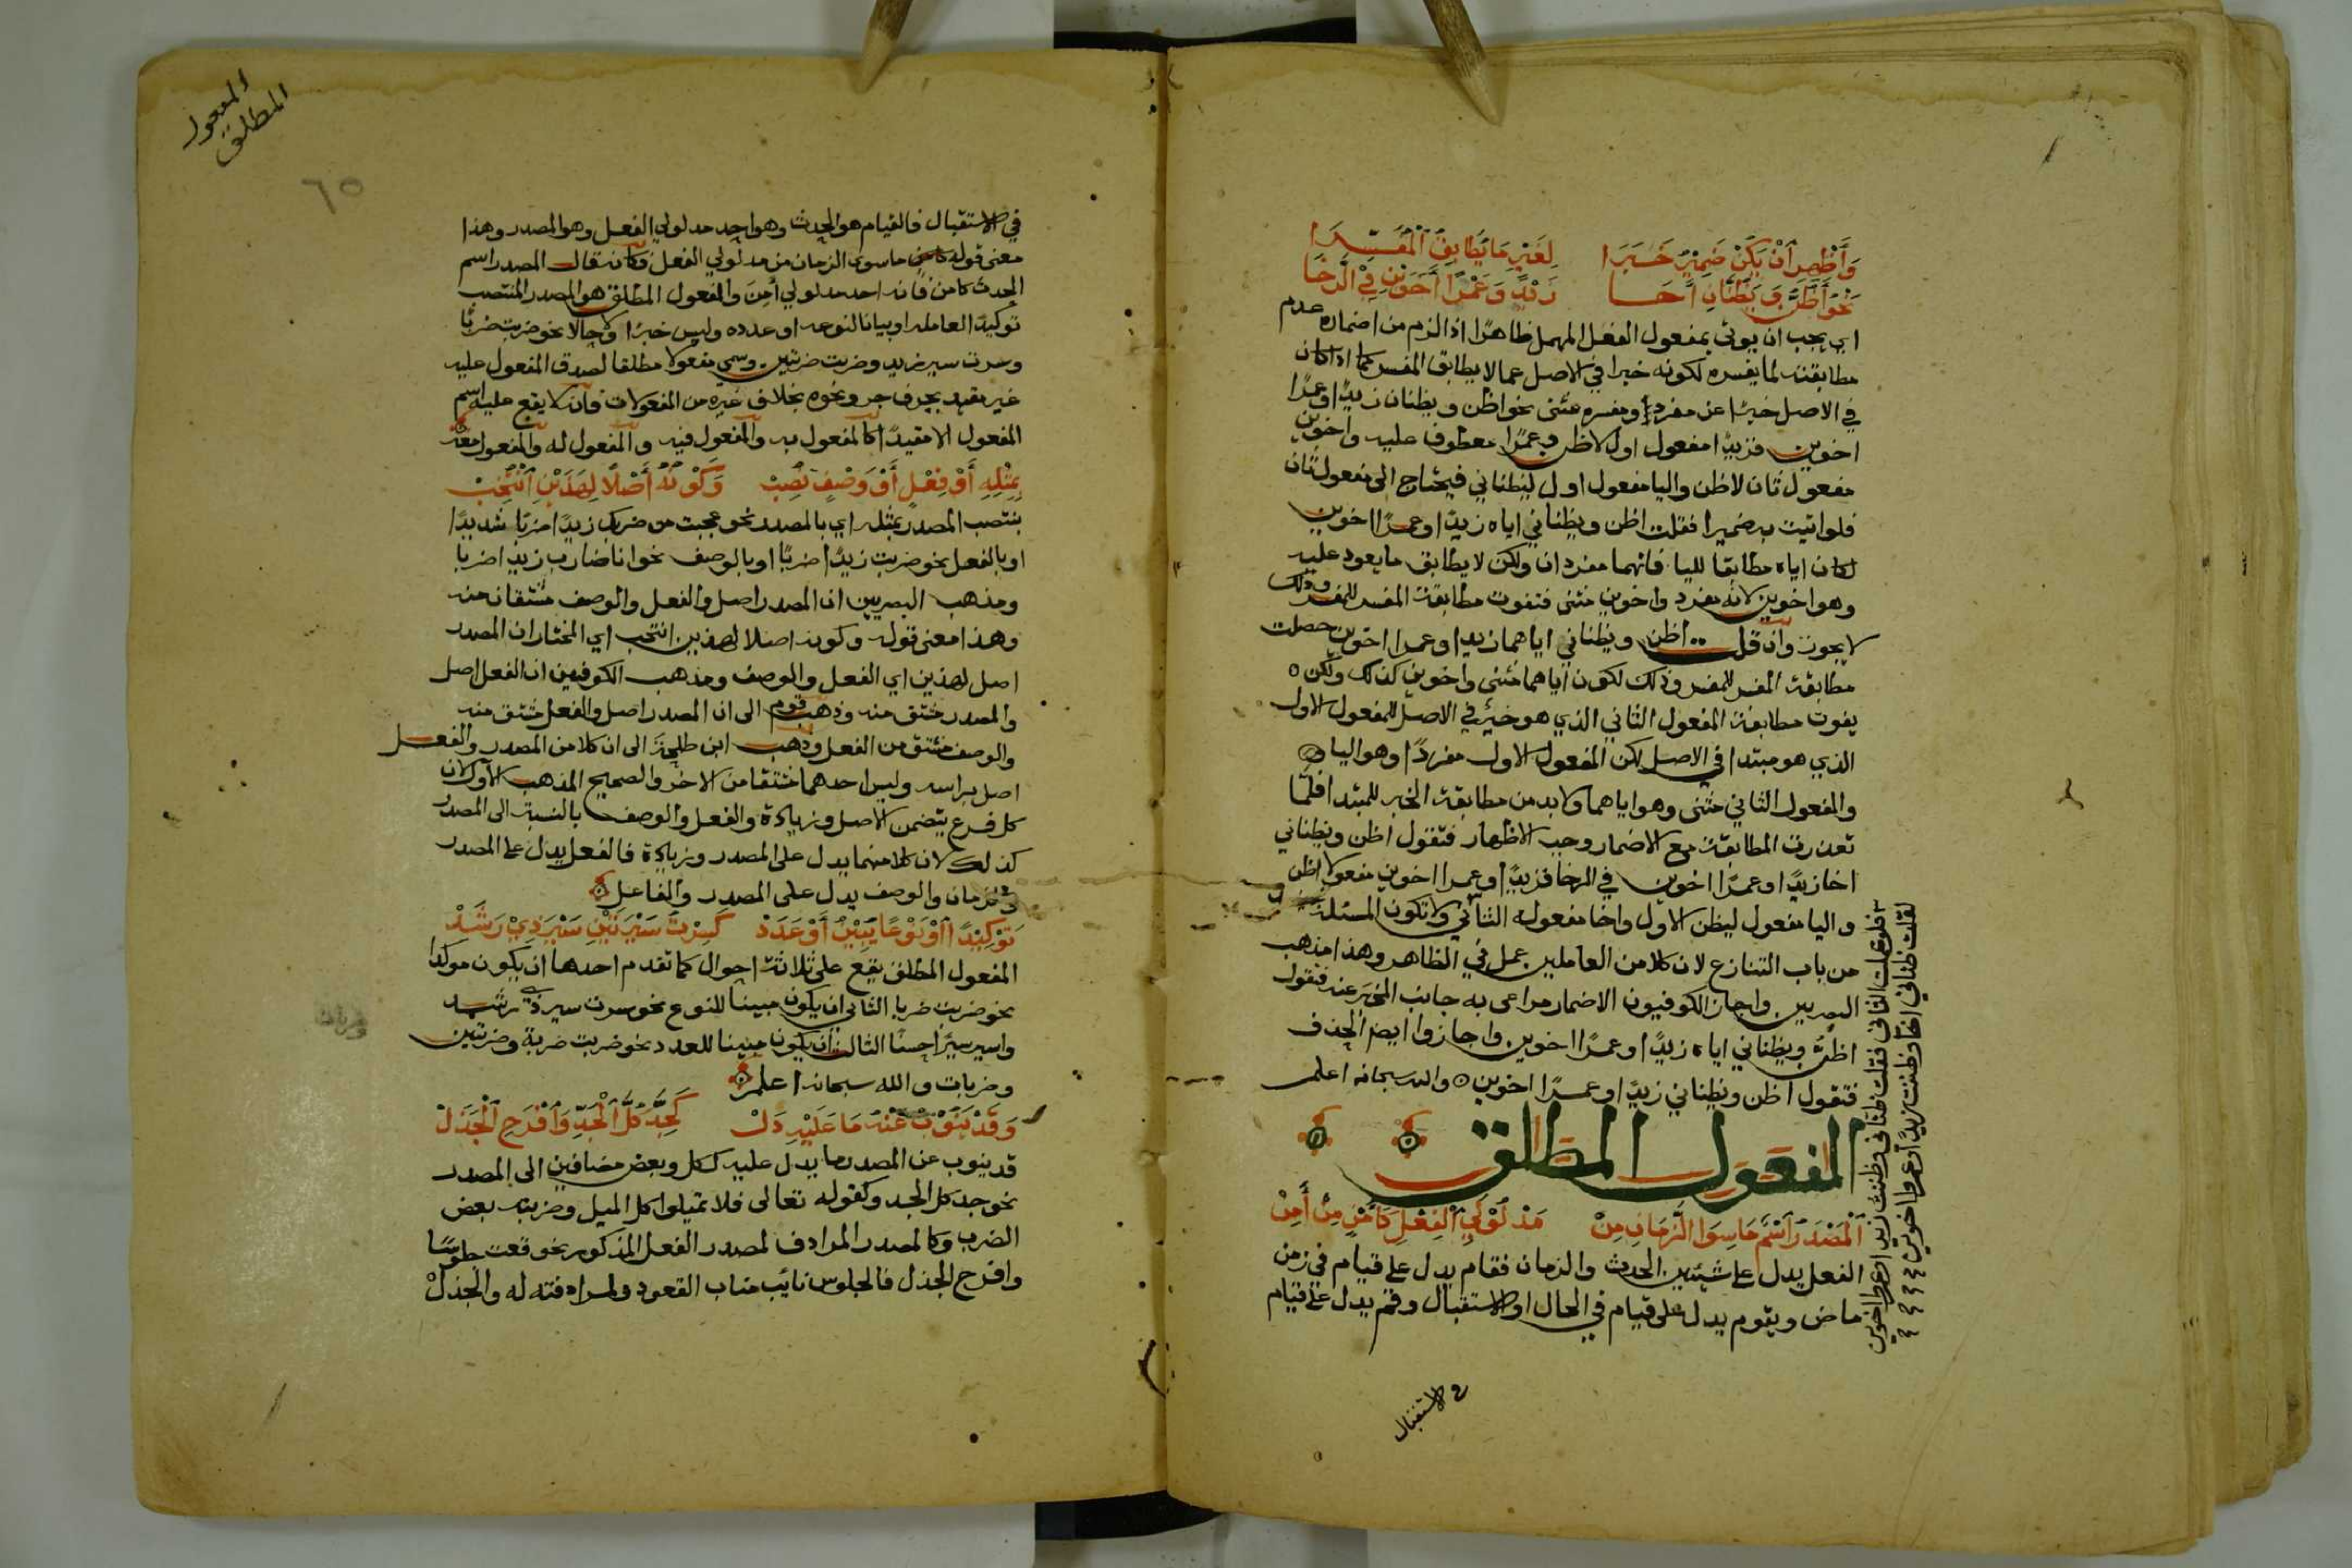 وَأَظْهِرِ انْ يَكُنْ ضَمِيْرٌ خَبَرَا لِغَيْرِ مَا يُطَابِقُ الْمُفَسِّرَا
نَحْوُ أَظُنُّ وَيَظُنَّانِ أَخَا زَيْدًا وَعَمْرًا أَخَوَيْنِ فِيْ الرَّخَا
اي يجب ان يوتى بمفعول الفعل المهمل ظاهرًا اذا لزم من اضماره عدم
مطابقته لما يفسره لكونه خبرا في الاصل عما لا يطابق المفسر كما اذا كان
في الاصل خبرًا عن مفرد ومفسره مثنى نحو اظن ويظنان زيدًا وعمرًا
اخوين فزيدًا مفعول اول لاظن وعمرًا معطوف عليه واخوين
مفعول ثان لاظن واليا مفعول اول ليظناني فيحتاج الى مفعول ثان
فلو اتيت به ضميرا فقلت اظن ويظناني اياه زيدًا وعمرًا اخوين
لكان اياه مطابقا لليا فانهما مفردان ولكن لا يطابق ما يعود عليه
وهو اخوين لانه مفرد واخوين مثنى فتفوت مطابقة المفسر للمفسر وذلك
لا يجوز وان قلت اظن ويظناني اياهما زيدا وعمرا اخوين حصلت
مطابقة المفسر للمفسر وذلك لكون اياهما مثنى واخوين كذلك ولكن ٥
يفوت مطابقة المفعول الثاني الذي هو خبر في الاصل للمفعول الاول
الذي هو مبتدا في الاصل لكن المفعول الاول مفردًا وهو اليا
والمفعول الثاني مثنى وهو اياهما ولا بد من مطابقة الخبر للمبتدا فلما
تعذرت المطابقة مع الاضمار وجب الاظهار فتقول اظن ويظناني
اخا زيدًا وعمرًا اخوين في الرخا فزيدًا وعمرا اخوين مفعولا اظن
واليا مفعول ليظن الاول واخا مفعوله الثاني ولا تكون المسئلة
من باب التنازع لان كلا من العاملين عمل في الظاهر وهذا مذهب
البصريين واجاز الكوفيون الاضمار مراعى به جانب المخبر عنه فتقول
اظن ويظناني اياه زيدًا وعمرًا اخوين واجازوا ايضا الحذف
فتقول اظن ويظناني زيدًا وعمرًا اخوين ٥ والله سبحانه اعلم
المفعول المطلق
اَلْمَصْدَرُ اسْمُ مَا سِوَا الزَّمَانِ مِنْ مَدْلُوْلَيِ الْفِعْلِ كَأَمْنٍ مِنْ أَمِنْ
الفعل يدل على شيئين الحدث والزمان فقام يدل على قيام في زمن
ماض ويقوم يدل على قيام في الحال او الاستقبال وقم يدل على قيام
في الاستقبال
فلو اعملت الثاني فقلت ظناني وظننت زيدا وعمرا اخوين
لقلت ظناني اخا وظننت زيدًا وعمرا اخوين
المفعول
المطلق
٦٥
في الاستقبال فالقيام هو الحدث وهو احد مدلولي الفعل وهو المصدر وهذا
معنى قوله ما سوى الزمان من مدلولي الفعل فكانه قال المصدر اسم
الحدث كامن فانه احد مدلولي أمِنَ والمفعول المطلق هو المصدر المنتصب
توكيدًا لعامله او بيانا لنوعه او عدده وليس خبرًا ولا حالا نحو ضربت ضربًا
وسرت سير زيد وضربت ضربتين وسمي مفعولا مطلقا لصدق المفعول عليه
غير مقيد بحرف جر ونحوه بخلاف غيره من المفعولات فانه لا يقع عليه اسم
المفعول الا مقيدًا كالمفعول به والمفعول فيه والمفعول له والمفعول معه
بِمِثْلِهِ أَوْ فِعْلٍ أَوْ وَصْفٍ نُصِبْ وَكَوْنُهُ أَصْلًا لِهَذَيْنِ انْتُخِبْ
ينتصب المصدر بمثله اي بالمصدر نحو عجبت من ضربك زيدًا ضربًا شديدًا
او بالفعل نحو ضربت زيدًا ضربًا او بالوصف نحو انا ضارب زيدا ضربا
ومذهب البصريين ان المصدر اصل والفعل والوصف مشتقان منه
وهذا معنى قوله وكونه اصلا لهذين انتخب اي المختار ان المصدر
اصل لهذين اي الفعل والوصف ومذهب الكوفيين ان الفعل اصل
والمصدر مشتق منه وذهب قوم الى ان المصدر اصل والفعل مشتق منه
والوصف مشتق من الفعل وذهب ابن طلحة الى ان كلا من المصدر والفعل
اصل براسه وليس احدهما مشتقا من الاخر والصحيح المذهب الاول لان
كل فرع يتضمن الاصل وزيادة والفعل والوصف بالنسبة الى المصدر
كذلك لان كلا منهما يدل على المصدر وزيادة فالفعل يدل على المصدر
والزمان والوصف يدل على المصدر والفاعل
تَوْكِيْدًا اوْ نَوْعًا يُبِيْنُ أَوْ عَدَدْ كَسِرْتُ سَيْرَتَيْنِ سَيْرَ ذِيْ رَشَدْ
المفعول المطلق يقع على ثلاثة احوال كما تقدم احدها ان يكون موكدا
نحو ضربت ضربا الثاني ان يكون مبينا للنوع نحو سرت سير ذي رشد
واسير سيرًا حسنًا الثالث ان يكون مبينا للعدد نحو ضربت ضربة وضربتين
وضربات والله سبحانه اعلم
وَقَدْ يَنُوْبُ عَنْهُ مَا عَلَيْهِ دَلْ كَجِدَّ كُلَّ الْجِدِّ وَافْرَحِ الْجَذَلْ
قد ينوب عن المصدر ما يدل عليه ككل وبعض مضافين الى المصدر
نحو جد كل الجد وكقوله تعالى فلا تميلوا كل الميل وضربته بعض
الضرب وكالمصدر المرادف لمصدر الفعل المذكور نحو قعدت جلوسًا
وافرح الجذل فالجلوس نائب مناب القعود لمرادفته له والجذل